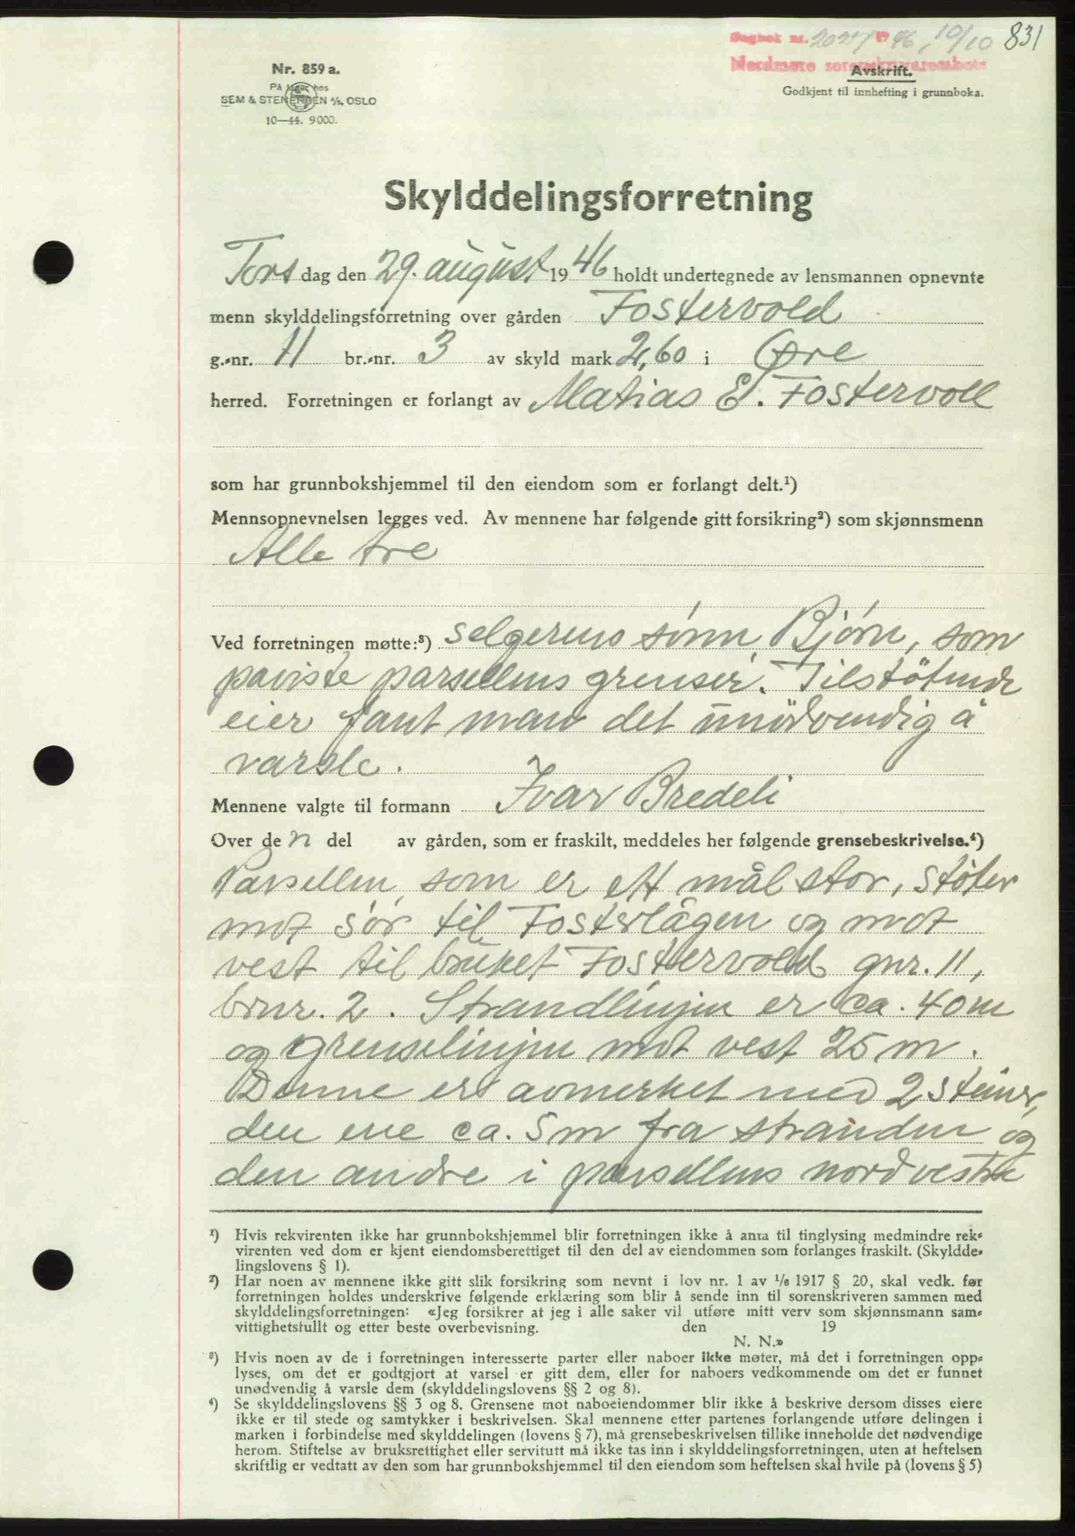 Dagbok nr. 2027 1946, 10/10 831
Nordmøre sorenskriverembete
Avskrift.
Godkjent til innhefting i grunnboka.
Nr. 859 a.
På lager hos
SEM & STENERSEN A/S, OSLO
10—44. 9000.
Skylddelingsforretning
Tors dag den 29. august 1946 holdt undertegnede av lensmannen opnevnte
menn skylddelingsforretning over gården Fostervold
g.-nr. 11 br.-nr. 3 av skyld mark 2,60 i Øre
herred. Forretningen er forlangt av Matias E. Fostervoll
som har grunnbokshjemmel til den eiendom som er forlangt delt.¹)
Mennsopnevnelsen legges ved. Av mennene har følgende gitt forsikring²) som skjønnsmenn
Alle tre
Ved forretningen møtte:³) selgerens sønn, Bjørn, som
påviste parsellens grenser. Tilstøtende
eier fant man det unødvendig å
varsle.
Mennene valgte til formann Ivar Bredeli
Over den del av gården, som er fraskilt, meddeles her følgende grensebeskrivelse.⁴)
Parsellen som er ett mål stor, støter
mot sør til Fosterlågen og mot
vest til bruket Fostervold gnr. 11,
brnr. 2. Strandlinjen er ca. 40 m
og grenselinjen mot vest 25 m.
Denne er avmerket med 2 steiner,
den ene ca. 5 m fra stranden og
den andre i parsellens nordvestre
¹) Hvis rekvirenten ikke har grunnbokshjemmel blir forretningen ikke å anta til tinglysing medmindre rek-
virenten ved dom er kjent eiendomsberettiget til den del av eiendommen som forlanges fraskilt. (Skyldde-
lingslovens § 1).
²) Har noen av mennene ikke gitt slik forsikring som nevnt i lov nr. 1 av 1/6 1917 § 20, skal vedk. før
forretningen holdes underskrive følgende erklæring som blir å sende inn til sorenskriveren sammen med
skylddelingsforretningen: «Jeg forsikrer at jeg i alle saker vil utføre mitt verv som skjønnsmann sam-
vittighetsfullt og etter beste overbevisning. den 19
N. N.»
³) Hvis noen av de i forretningen interesserte parter eller naboer ikke møter, må det i forretningen opp-
lyses, om det er godtgjort at varsel er gitt dem, eller for naboers vedkommende om det er funnet
unødvendig å varsle dem (skylddelingslovens §§ 2 og 8).
⁴) Se skylddelingslovens §§ 3 og 8. Grensene mot naboeiendommer blir ikke å beskrive dersom disses eiere
ikke er til stede og samtykker i beskrivelsen. Skal mennene etter partenes forlangende utføre delingen i
marken i forbindelse med skylddelingen (lovens § 7), må grensebeskrivelsen tillike inneholde det nødvendige
herom. Stiftelse av bruksrettighet eller servitutt må ikke tas inn i skylddelingsforretningen, uten at heftelsen
skriftlig er vedtatt av den som har grunnbokshjemmel til den eiendom som heftelsen skal hvile på (lovens § 5)